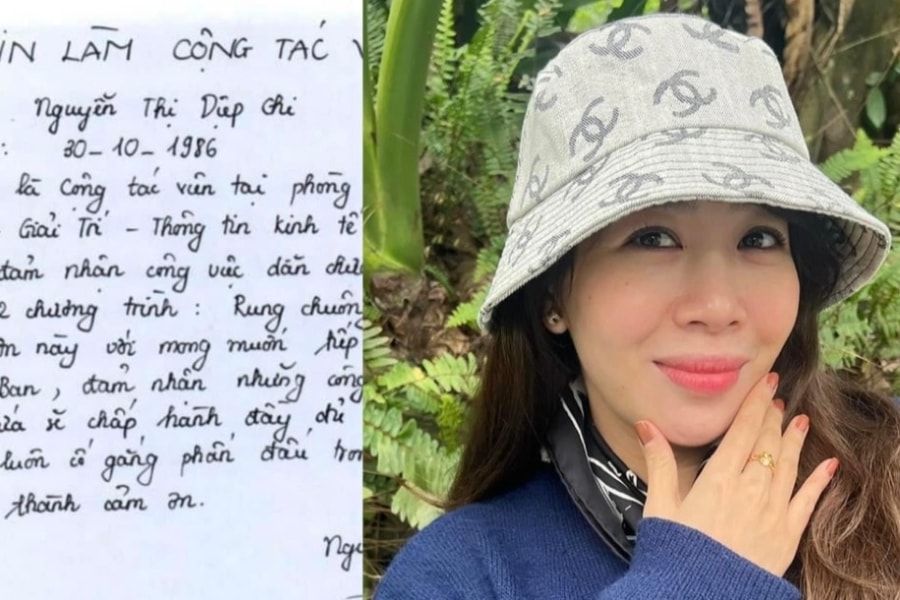 IN LÀM CỘNG TÁC V
Nguyễn Thị Diệp Chi
: 30-10-1986
là Cộng tác viên tại phòng
Giải Trí - Thông tin kinh tế
đảm nhận công việc dẫn chư
2 chương trình : Rung chuông
ơn này với mong muốn tiếp
Ban, đảm nhận những công
ứa sẽ chấp hành đầy đủ
luôn cố gắng phấn đấu tron
thành cảm ơn.
Ngu